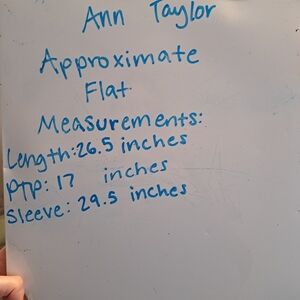 Ann Taylor
Approximate
Flat
Measurements:
Length: 26.5 inches
PTP: 17 inches
Sleeve: 29.5 inches